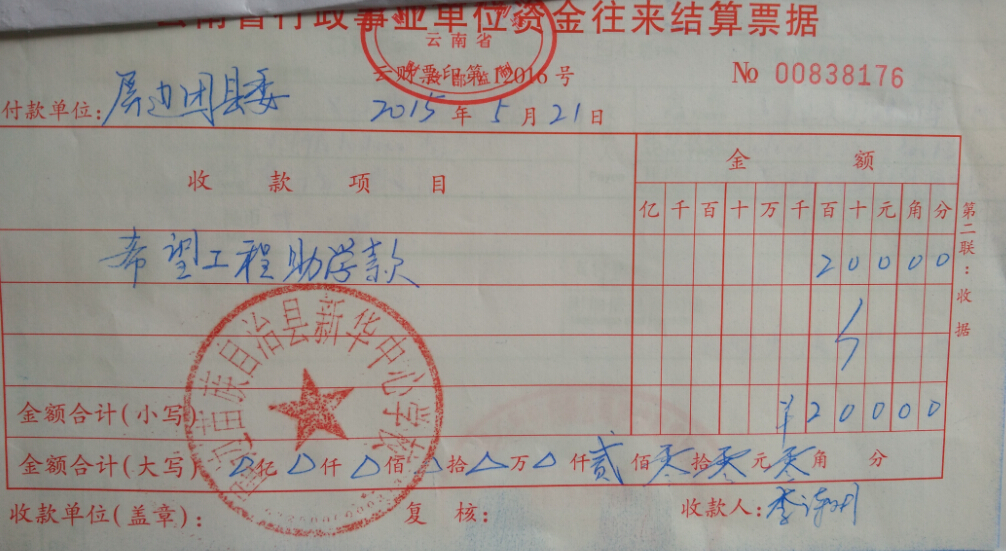 云南省行政事业单位资金往来结算票据
云南省
云财票印第 2016 号
№ 00838176
付款单位: 屏边团县委 2015 年 5 月 21 日
收款项目 金额
亿 千 百 十 万 千 百 十 元 角 分
希望工程助学款 2 0 0 0 0
金额合计(小写) ¥ 2 0 0 0 0
金额合计(大写) △亿 △仟 △佰 △拾 △万 △仟 贰佰 零拾 零元 零角 分
收款单位(盖章): 复核: 收款人: 李
第二联:收据
屏边苗族自治县新华中心学校